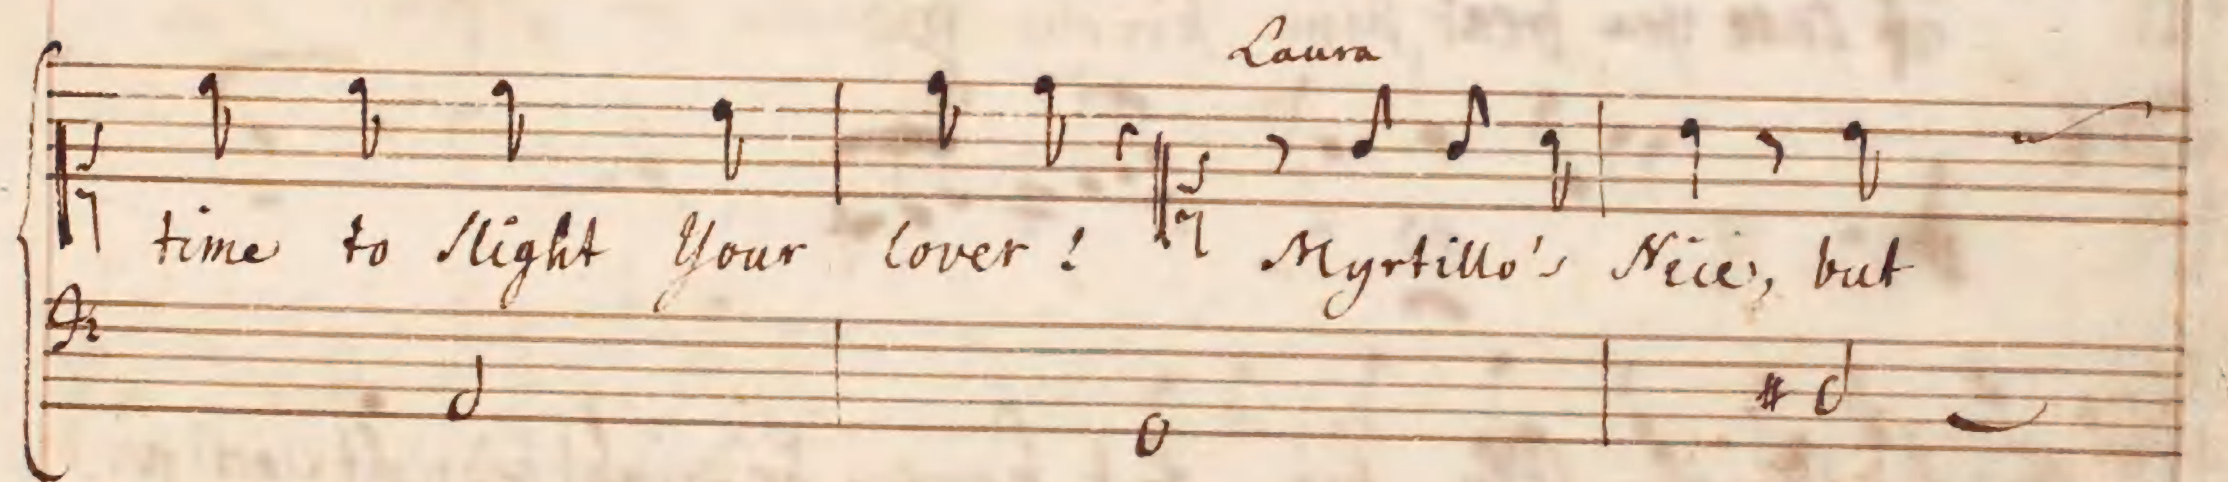 Laura
time to slight Your lover! Myrtillo's Nice, but